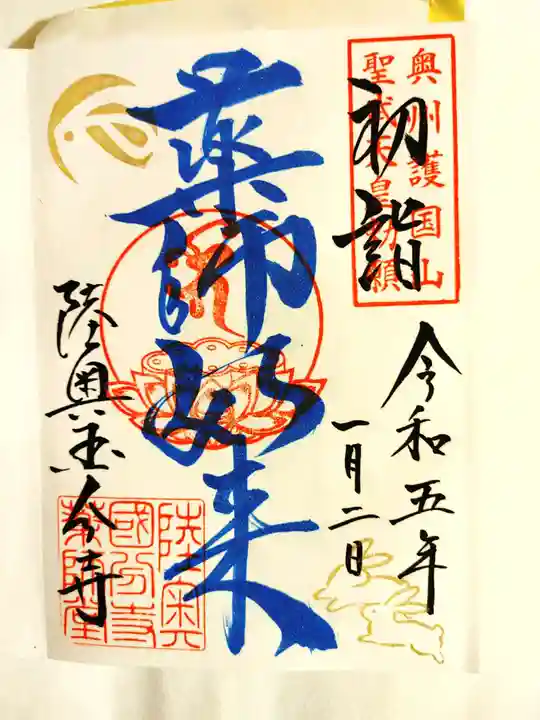 奥州護国山
聖武天皇勅願
初詣
令和五年
一月二日
薬師如来
心
陸奥国分寺
陸奥
國分寺
薬師堂